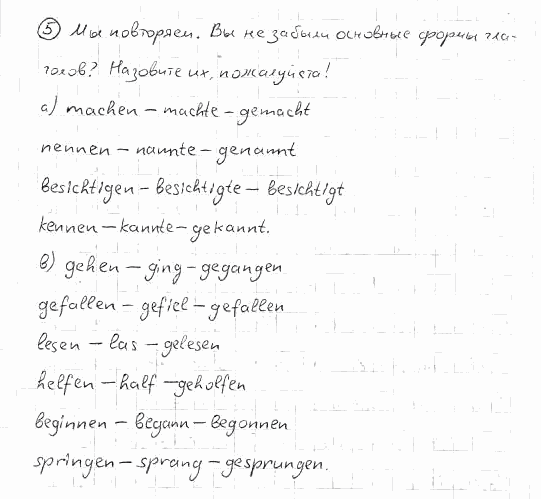 ⑤ Мы повторяем. Вы не забыли основные формы гла-
голов? Назовите их, пожалуйста!
а) machen – machte – gemacht
nennen – nannte – genannt
besichtigen – besichtigte – besichtigt
kennen – kannte – gekannt.
в) gehen – ging – gegangen
gefallen – gefiel – gefallen
lesen – las – gelesen
helfen – half – geholfen
beginnen – begann – begonnen
springen – sprang – gesprungen.